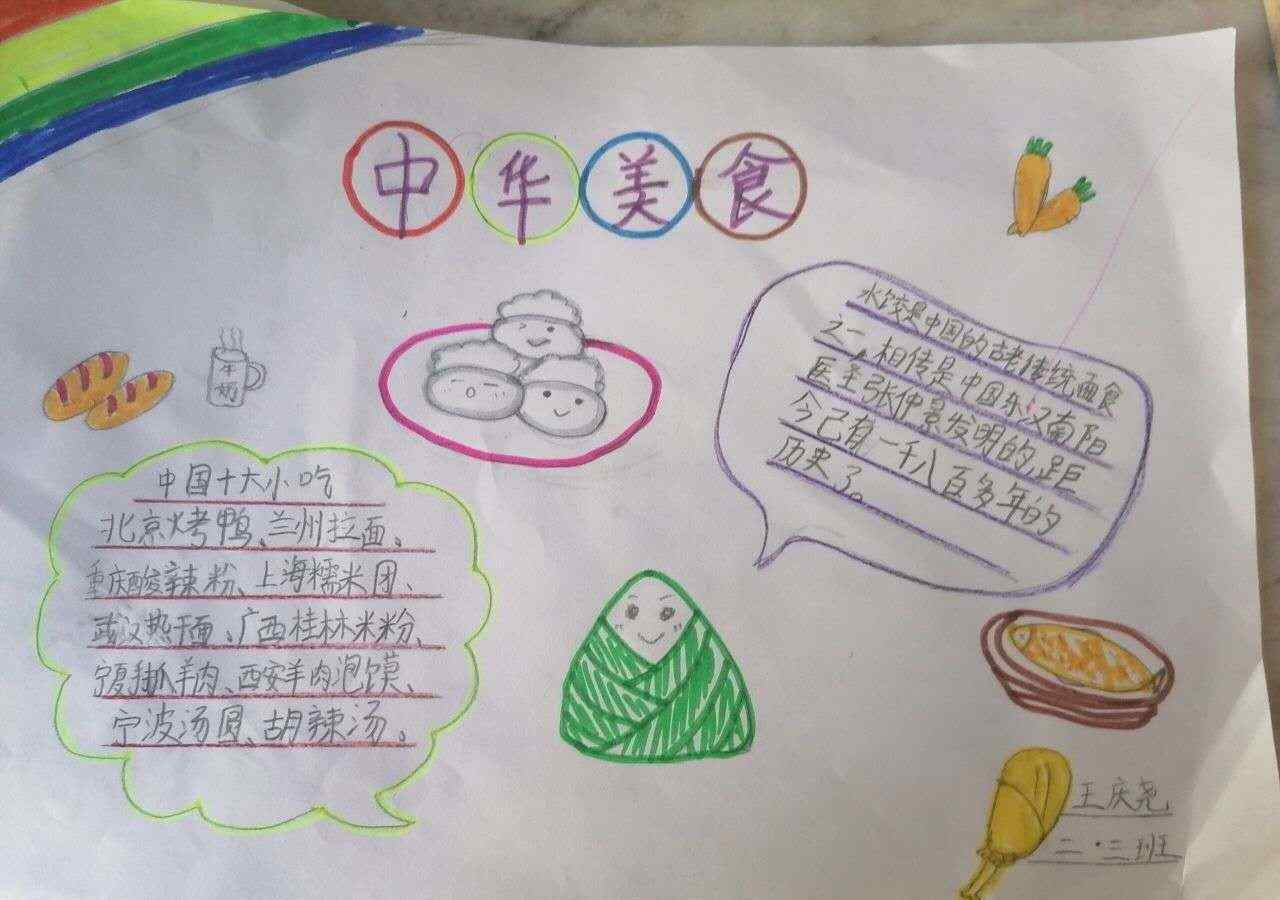 中华美食
水饺是中国的古老传统面食
之一,相传是中国东汉南阳
医圣张仲景发明的,距
今已有一千八百多年的
历史了。
牛
奶
中国十大小吃
北京烤鸭、兰州拉面、
重庆酸辣粉、上海糯米团、
武汉热干面、广西桂林米粉、
宁夏手抓羊肉、西安羊肉泡馍、
宁波汤圆、胡辣汤。
王庆尧
二·三班